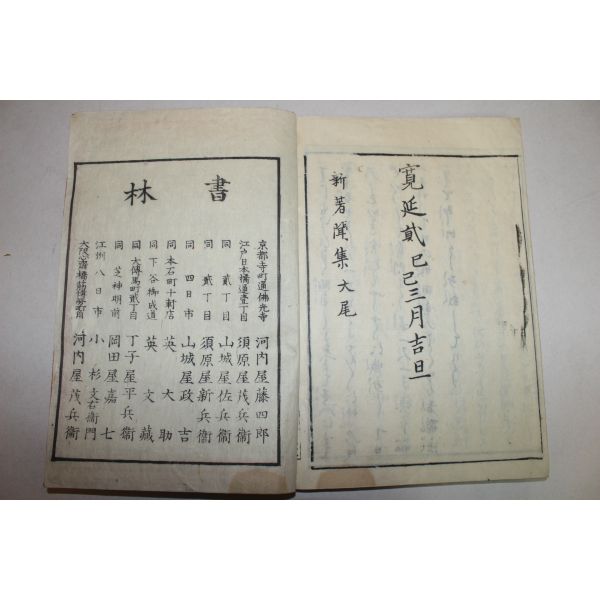 寛延貳己巳三月吉旦
新著聞集 大尾
書林
京都寺町通佛光寺 河内屋藤四郎
江戸日本橋通壹丁目 須原屋茂兵衞
同 貳丁目 山城屋佐兵衞
同 貳丁目 須原屋新兵衞
同 四日市 山城屋政吉
同 本石町十軒店 英大助
同 下谷御成道 英文藏
同 大傳馬町貳丁目 丁子屋平兵衞
同 芝神明前 岡田屋嘉七
江州八日市 小杉文右衞門
大阪心齋橋筋博勞町角 河内屋茂兵衞